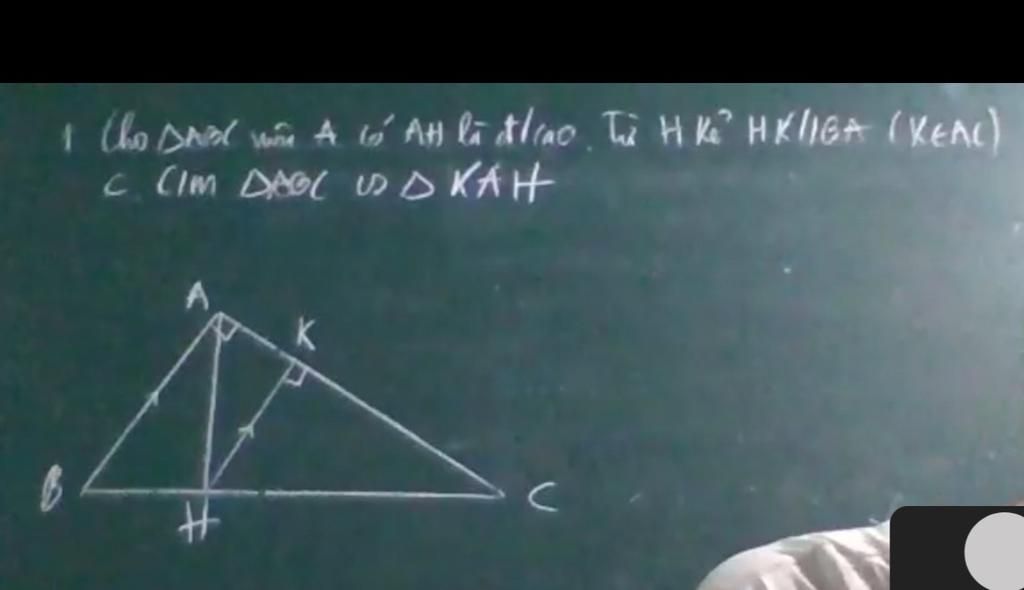 1 Cho ΔABC vuông A có AH là đ/cao. Từ H kẻ HK//BA (K∈AC)
C. C/m ΔABC ∽ Δ KAH
A
K
B
H
C